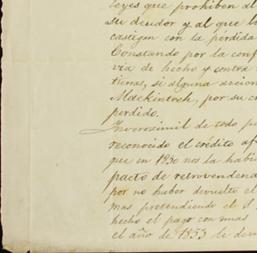 leyes que prohiben al
su deudor y al que lo
castigan con la pérdida
Constando por la conf
via de hecho y contra
tienas, si alguna accion
Mackintosh, por su c
perdido.
Inverosimil de todo pu
reconocido el crédito af
que en 1850 nos la habi
pacto de retrovendena
por no haber devuelto el
mas pretendiendo el S
hecho el pago con unas
el año de 1853 le dev